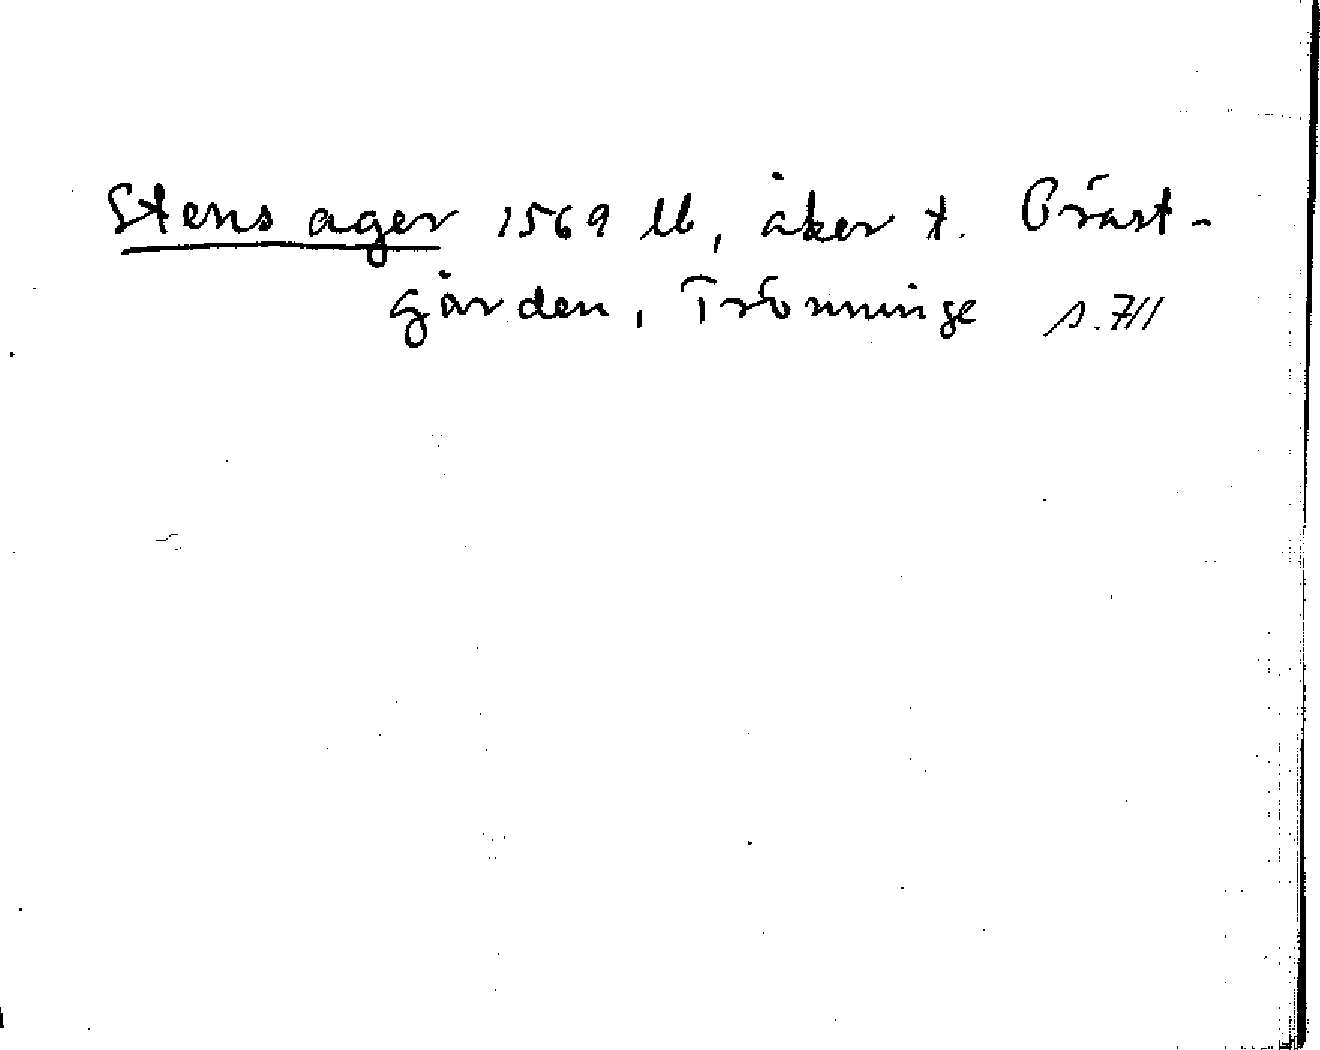 Stens ager 1569 lb, åker t. Präst-
gården, Trönninge s. 711